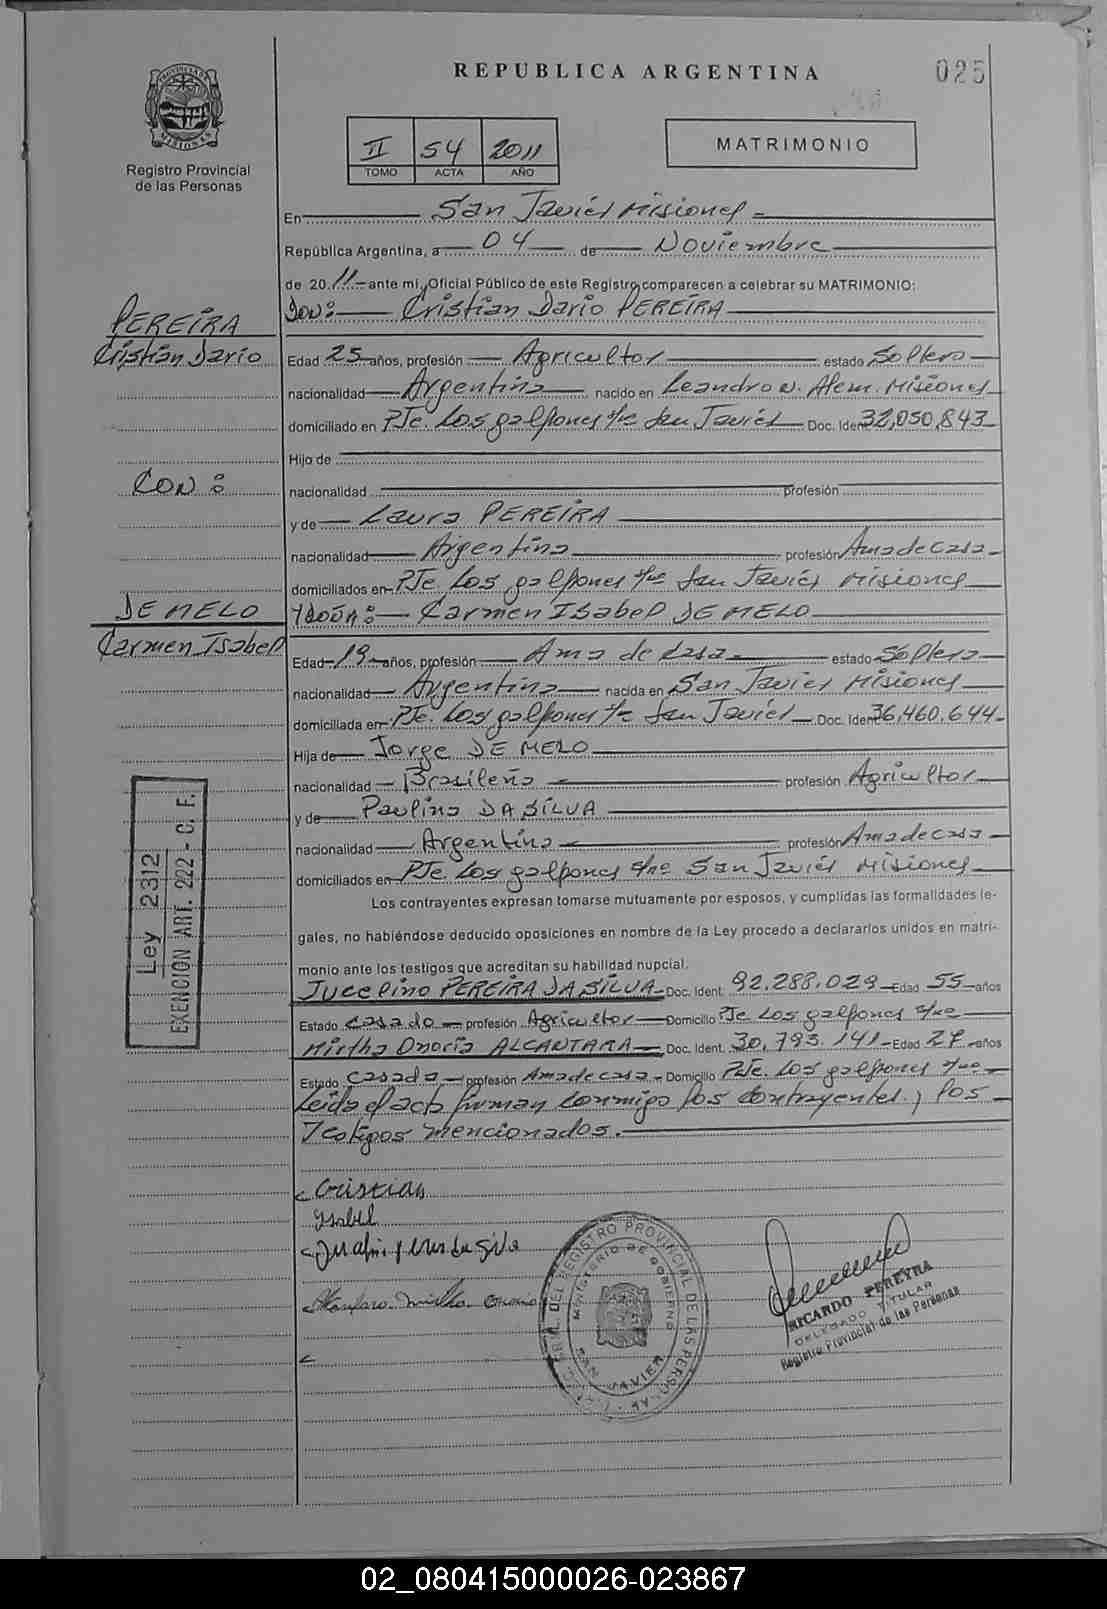 REPUBLICA ARGENTINA
025
PROVINCIA DE MISIONES
Registro Provincial
de las Personas
II 54 2011
TOMO ACTA AÑO
MATRIMONIO
En San Javier Misiones
República Argentina, a 04 de Noviembre
de 2011 ante mi, Oficial Público de este Registro comparecen a celebrar su MATRIMONIO:
Don: Cristian Dario PEREIRA
PEREIRA
Cristian Dario
Edad 25 años, profesión Agricultor estado Soltero
nacionalidad Argentina nacido en Leandro N. Alem. Misiones
domiciliado en Pje. Los galpones s/nº San Javier Doc. Ident 32,050,843
Hijo de
CON:
nacionalidad profesión
y de Laura PEREIRA
nacionalidad Argentina profesión Ama de casa
domiciliados en Pje. Los galpones s/nº San Javier Misiones
DE MELO
Carmen Isabel
Y Doña: Carmen Isabel DE MELO
Edad 19 años, profesión Ama de casa estado Soltera
nacionalidad Argentina nacida en San Javier Misiones
domiciliada en Pje. Los galpones s/nº San Javier Doc. Ident 36,460.644
Hija de Jorge DE MELO
nacionalidad Brasileña profesión Agricultor
y de Paulina DA SILVA
nacionalidad Argentina profesión Ama de casa
domiciliados en Pje. Los galpones s/nº San Javier Misiones
Ley 2312
EXENCION ART. 222 - C. F.
Los contrayentes expresan tomarse mutuamente por esposos, y cumplidas las formalidades le-
gales, no habiéndose deducido oposiciones en nombre de la Ley procedo a declararlos unidos en matri-
monio ante los testigos que acreditan su habilidad nupcial.
Jucelino PEREIRA DA SILVA Doc. Ident. 92.288.029 Edad 55 años
Estado Casado profesión Agricultor Domicilio Pje Los galpones s/nº
Mirtha Onoria ALCANTARA Doc. Ident. 30,793.141 Edad 27 años
Estado Casada profesión Ama de casa Domicilio Pje. Los galpones s/nº
Leida el acta firman conmigo los contrayentes y los
Testigos mencionados.
Cristian
Ysabel
REGISTRO PROVINCIAL DE LAS PERSONAS
MINISTERIO DE GOBIERNO
SAN JAVIER
RICARDO PEREYRA
DELEGADO TITULAR
Registro Provincial de las Personas
02_080415000026-023867